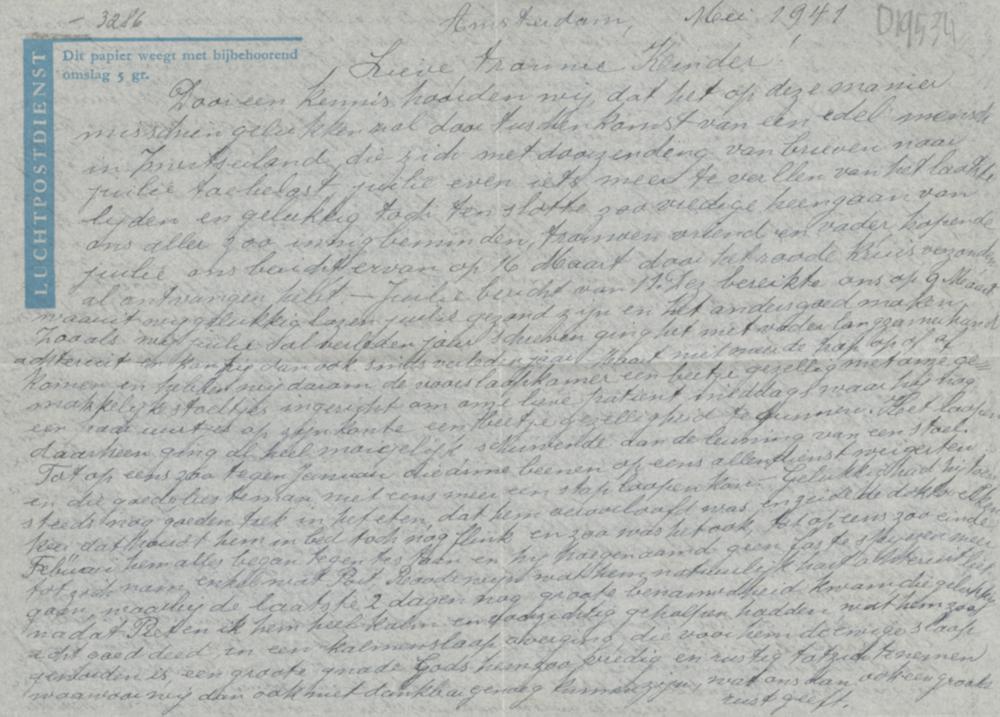 - 3286
Amsterdam, Mei 1941
D19534
LUCHTPOSTDIENST
Dit papier weegt met bijbehoorend
omslag 5 gr.
Lieve trouwe Kinder
Door een kennis hoorden wij, dat het op deze manier
misschien gelukken zal door tusschenkomst van een edel mensch
in Zwitserland, die zich met doorzending van brieven naar
jullie toebelast, jullie even iets meer te vertellen van het laatste
lijden en gelukkig toch ten slotte zoo vredige heengaan van
ons aller zoo innig beminden, trouwen vriend en vader hopende
jullie ons bericht ervan op 16 Maart door het roode Kruis verzonden
al ontvangen hebt. - Jullie bericht van 19 Dez bereikte ons op 9 Maart
waaruit wij gelukkig lazen jullie gezond zijn en het anders goed maken,
Zooals wij jullie verleden jaar schreven ging het met vader langzamerhand
achteruit en kon hij dan ook sinds verleden jaar Maart niet meer de trap op of af
komen en hebben wij daarom de voorslaapkamer een beetje gezellig met ge=
makkelijke stoeltjes ingericht om onze lieve patient middags waar hij nog
een paar uurtjes op zijn een beetje gezelligheid te gunnen. Het loopen
daarheen ging al heel moeielijk steunende dan de leuning van een stoel.
Tot op eens zoo tegen Januari die arme beenen op eens allen dienst weigerden
en die goede beste man niet eens meer een stap loopen kon. Gelukkig had hij toen
steeds nog goeden trek in het eten, dat hem veroorloofd was, en zeide de dokter elken
keer dat houdt hem in bed toch nog flink en zoo was het ook, tot op eens zoo einde
Februari hem alles begon tegen te staan en hij hoegenaamd geen meer
tot zich nam, enkel wat Port Roode wijn wat hem natuurlijk hard achteruit liet
gaan, waarbij de laatste 2 dagen nog groote benauwdheid kwam die gelukkig
nadat Piet en ik hem heel kalm en voorzichtig geholpen hadden wat hem zoo
goed deed in een kalmen slaap overging, die voor hem de eeuwige slaap
geworden is, een groote genade Gods hem zoo vredig en rustig tot zich te nemen
waarvoor wij dan ook niet dankbaar genoeg kunnen zijn, wat ons dan ook een groote
rust geeft.